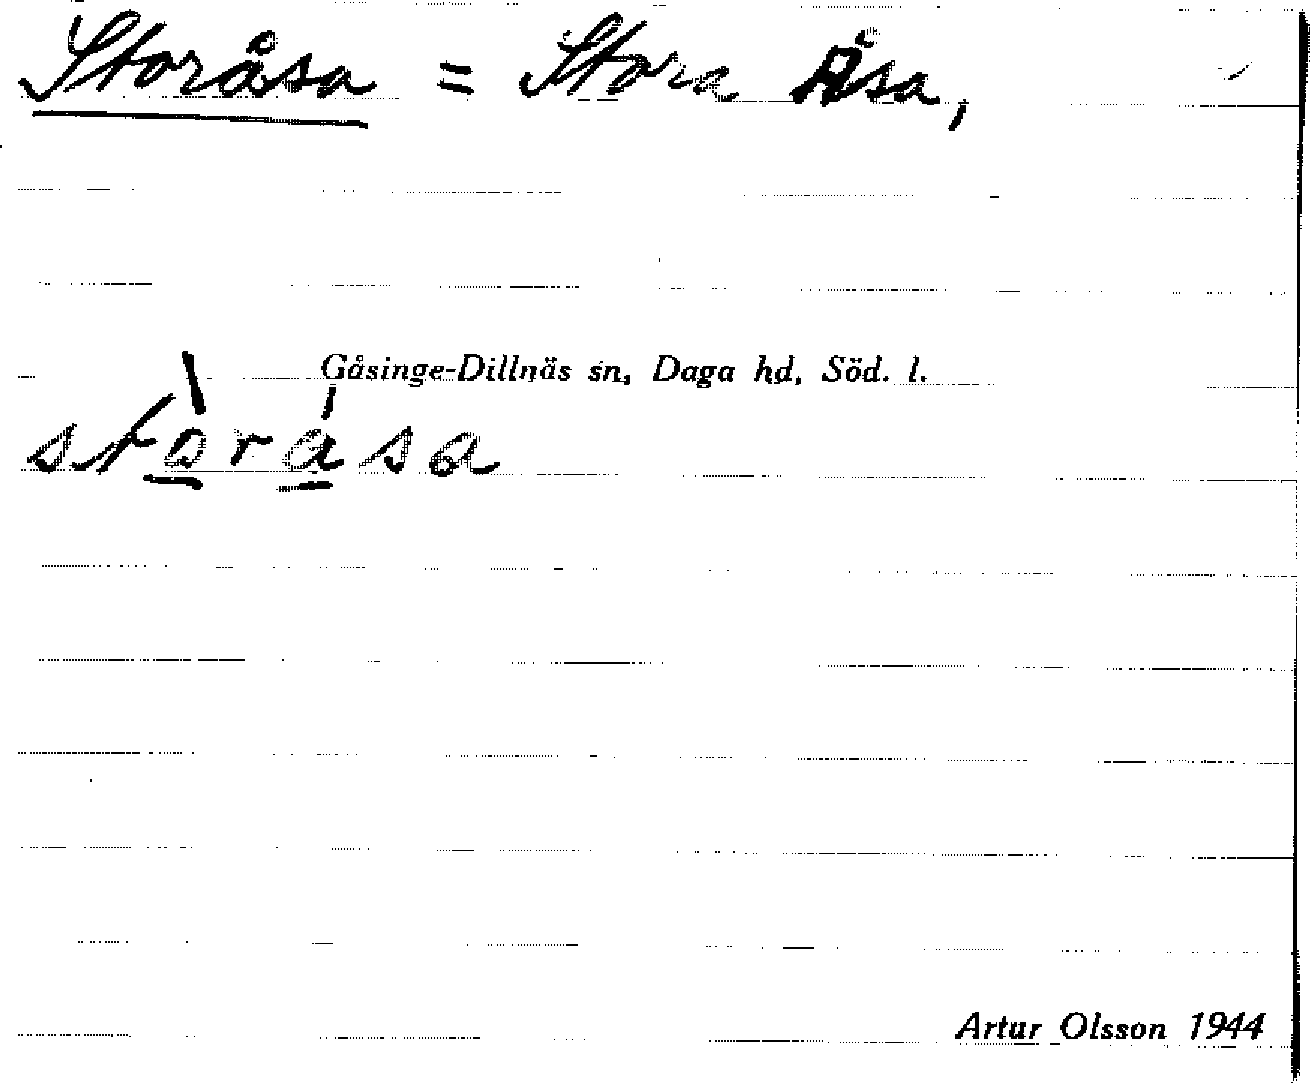 Storåsa = Stora Åsa,
Gåsinge-Dillnäs sn, Daga hd, Söd. l.
stòrása
Artur Olsson 1944